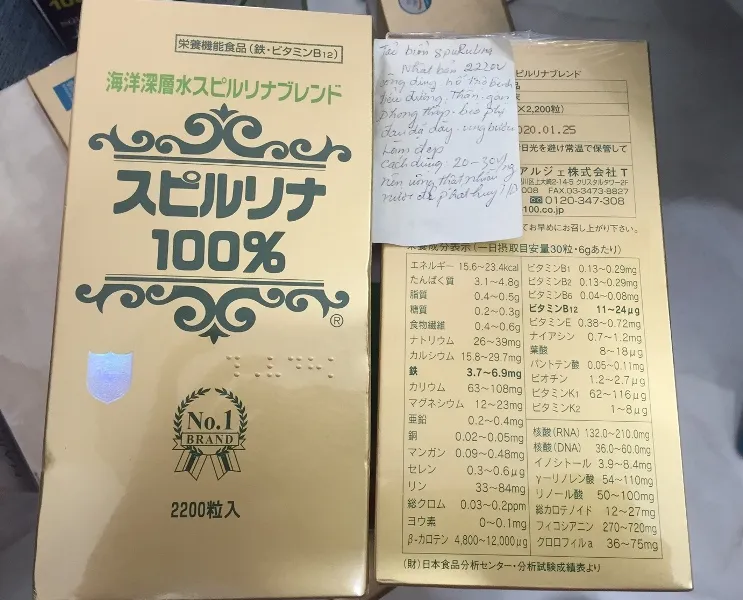 栄養機能食品（鉄・ビタミンB12）
海洋深層水スピルリナブレンド
スピルリナ
100%
®
No.1
BRAND
2200粒入
Tảo biển spirulina
Nhật bản 2220V
công dụng hỗ trợ bệnh
tiểu đường. Thận-gan
phong thấp-béo phì
đau dạ dày-ung bướu
Làm đẹp
Cách dùng 20-30V
nên uống thật nhiều
nước để phát huy T/D
ピルリナブレンド
品
×2,200粒）
020.01.25
日光を避け常温で保管して
アルジェ株式会社 T
川区上大崎2-14-5 クリスタルタワー2F
FAX.03-3473-8827
0120-347-308
100.co.jp
てお早めにお召し上がり下さい。
栄養成分表示（一日摂取目安量30粒・6gあたり）
エネルギー 15.6〜23.4kcal
たんぱく質 3.1〜4.8g
脂質 0.4〜0.5g
糖質 0.2〜0.3g
食物繊維 0.4〜0.6g
ナトリウム 26〜39mg
カルシウム 15.8〜29.7mg
鉄 3.7〜6.9mg
カリウム 63〜108mg
マグネシウム 12〜23mg
亜鉛 0.2〜0.4mg
銅 0.02〜0.05mg
マンガン 0.09〜0.48mg
セレン 0.3〜0.6μg
リン 33〜84mg
総クロム 0.03〜0.2ppm
ヨウ素 0〜0.1mg
β-カロテン 4,800〜12,000μg
ビタミンB1 0.13〜0.29mg
ビタミンB2 0.13〜0.29mg
ビタミンB6 0.04〜0.08mg
ビタミンB12 11〜24μg
ビタミンE 0.38〜0.72mg
ナイアシン 0.7〜1.2mg
葉酸 8〜18μg
パントテン酸 0.05〜0.11mg
ビオチン 1.2〜2.7μg
ビタミンK1 62〜116μg
ビタミンK2 1〜8μg
核酸(RNA) 132.0〜210.0mg
核酸(DNA) 36.0〜60.0mg
イノシトール 3.9〜8.4mg
γ-リノレン酸 54〜110mg
リノール酸 50〜100mg
総カロテノイド 12〜27mg
フィコシアニン 270〜720mg
クロロフィルa 36〜75mg
（財）日本食品分析センター・分析試験成績表より